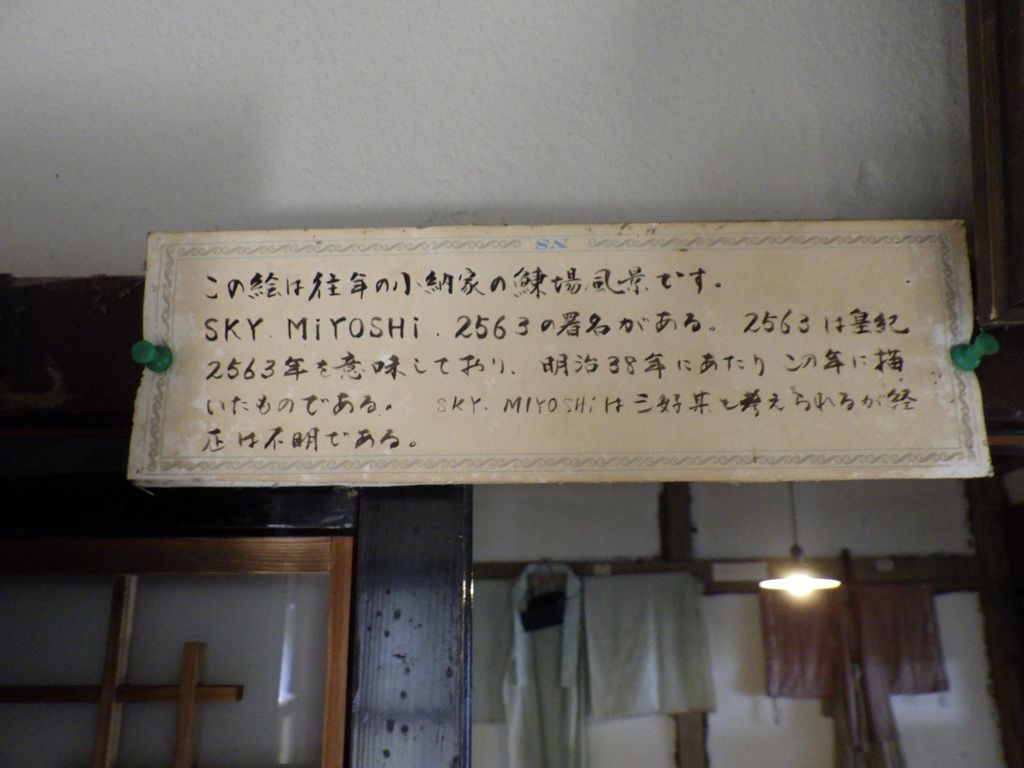 SN
この絵は往年の小納家の鰊場風景です。
SKY. MiYOSHi. 2563の署名がある。 2563は皇紀
2563年を意味しており、 明治38年にあたり この年に描
いたものである。 SKY. MIYOSHiは三好某と考えられるが経
正は不明である。